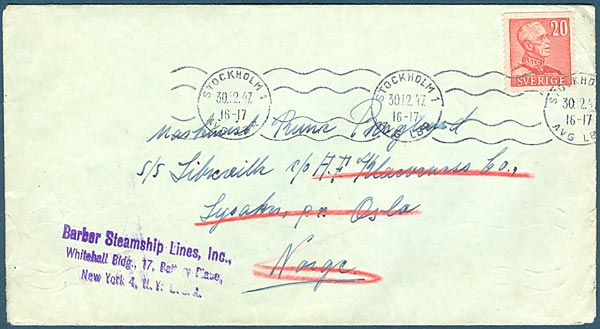 20
SVERIGE
STOCKHOLM 1
30.12.47
16-17
STOCKHOLM 1
30.12.47
16-17
30.12.47
16-17
AVG
Maskinist Rune
S/S c/o A.F. Klaveness & Co.,
Lysaker, pr. Oslo
Norge.
Barber Steamship Lines, Inc.,
Whitehall Bldg., 17, Battery Place,
New York 4, N.Y. U.S.A.